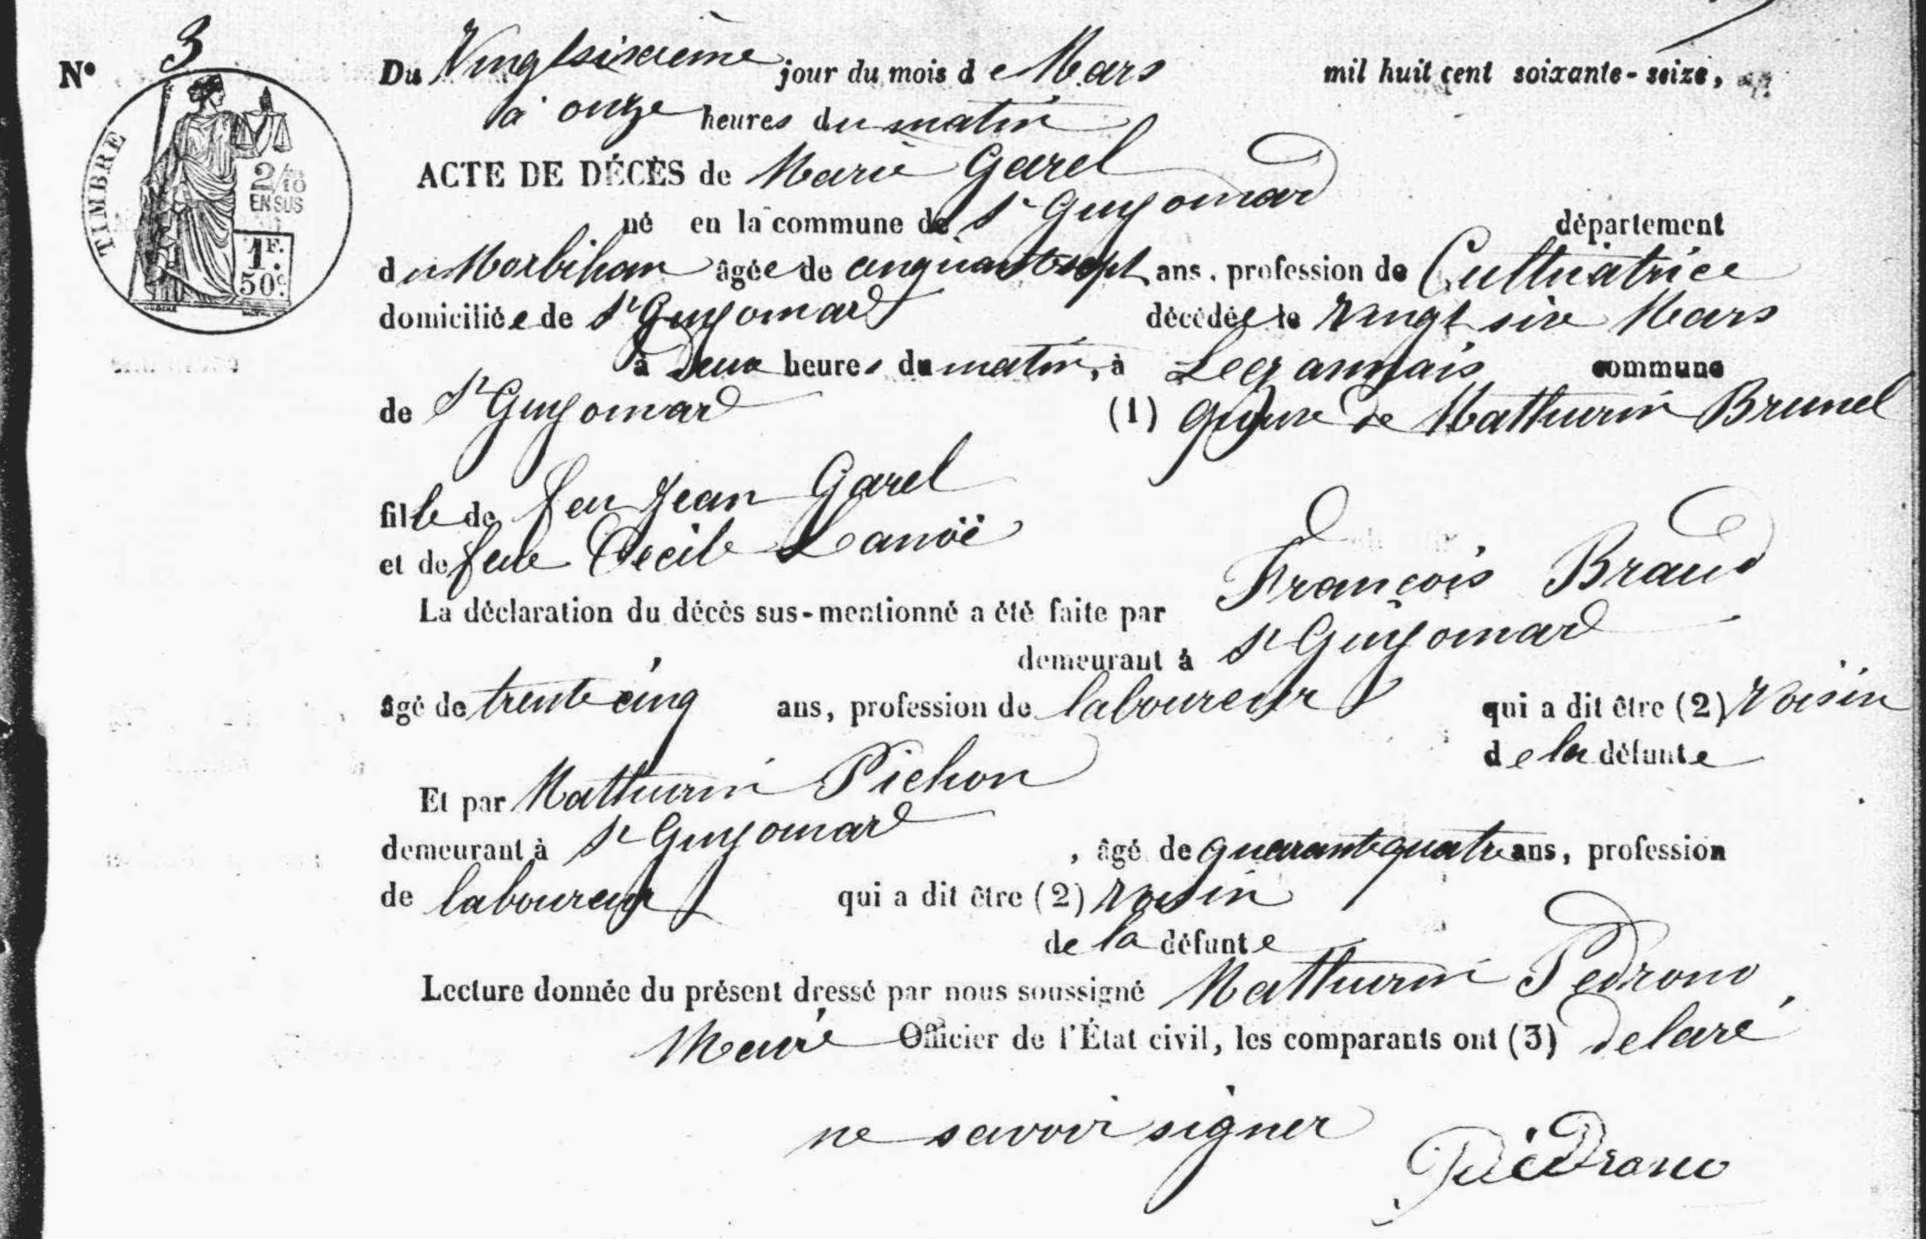 N° 3
TIMBRE
2/10
EN SUS
1F.
50c.
Du Vingtsixième jour du mois de Mars mil huit cent soixante-seize,
à onze heures du matin
ACTE DE DÉCÈS de Marie Garel
né en la commune de St Guyomard département
du Morbihan âgée de cinquante sept ans, profession de Cultivatrice
domiciliée de St Guyomard décédée le vingt six Mars
à Deux heures du matin, à commune
de St Guyomard (1) de Mathurin Brunel
fille de feu Jean Garel
et de feue Cecile Lanoë
La déclaration du décès sus-mentionné a été faite par François Braud
demeurant à St Guyomard
âgé de trente cinq ans, profession de laboureur qui a dit être (2) voisin
de la défunte
Et par Mathurin Pichon
demeurant à St Guyomard, âgé de quarante quatre ans, profession
de laboureur qui a dit être (2) voisin
de la défunte
Lecture donnée du présent dressé par nous soussigné Mathurin Pedrono
Maire Officier de l'État civil, les comparants ont (3) delaré
ne savoir signer
Pédrono